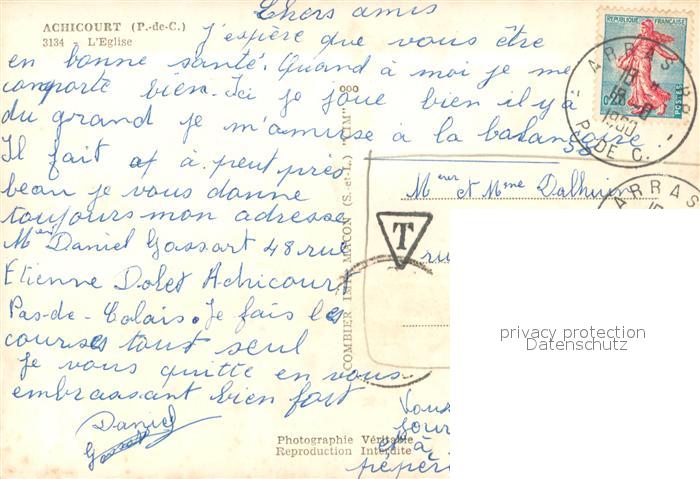 Chers amis
ACHICOURT (P.-de-C.)
3134 - L'Eglise
J'espère que vous être
en bonne santé. Quand à moi je me
comporte bien. Ici je joue bien il y à
du grand je m'amuse à la balançoire.
Il fait à peut près
beau je vous donne
toujours mon adresse
Mer Daniel Gossart 48 rue
Etienne Dolet Achicourt
Pas-de-Calais. Je fais les
courses tout seul
Je vous quitte en vous
embrassant bien fort
Daniel
Photographie Véritable
Reproduction Interdite
COMBIER IMP. MACON (S.-et-L.) "CIM"
REPUBLIQUE FRANÇAISE
0,20
POSTES
ARRAS
18
1960
P. DE C.
Mer et Mme Dalhuin
T
ru
ARRAS
Vous
jour
est à
pépèr
privacy protection
Datenschutz